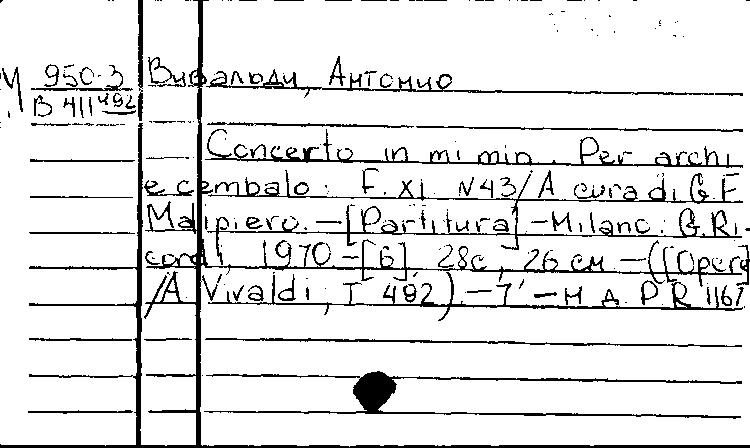 М 950-3 Вивальди, Антонио
В 411 492
Concerto in mi min. Per archi
e cembalo: F. XI N43/A cura di G.F.
Malipiero. —[Partitura] —Milano: G. Ri-
cordi, 1970.—[6], 28с., 26 см —([Opere]
/A. Vivaldi; T. 492).—7' —н. д. P.R. 1167